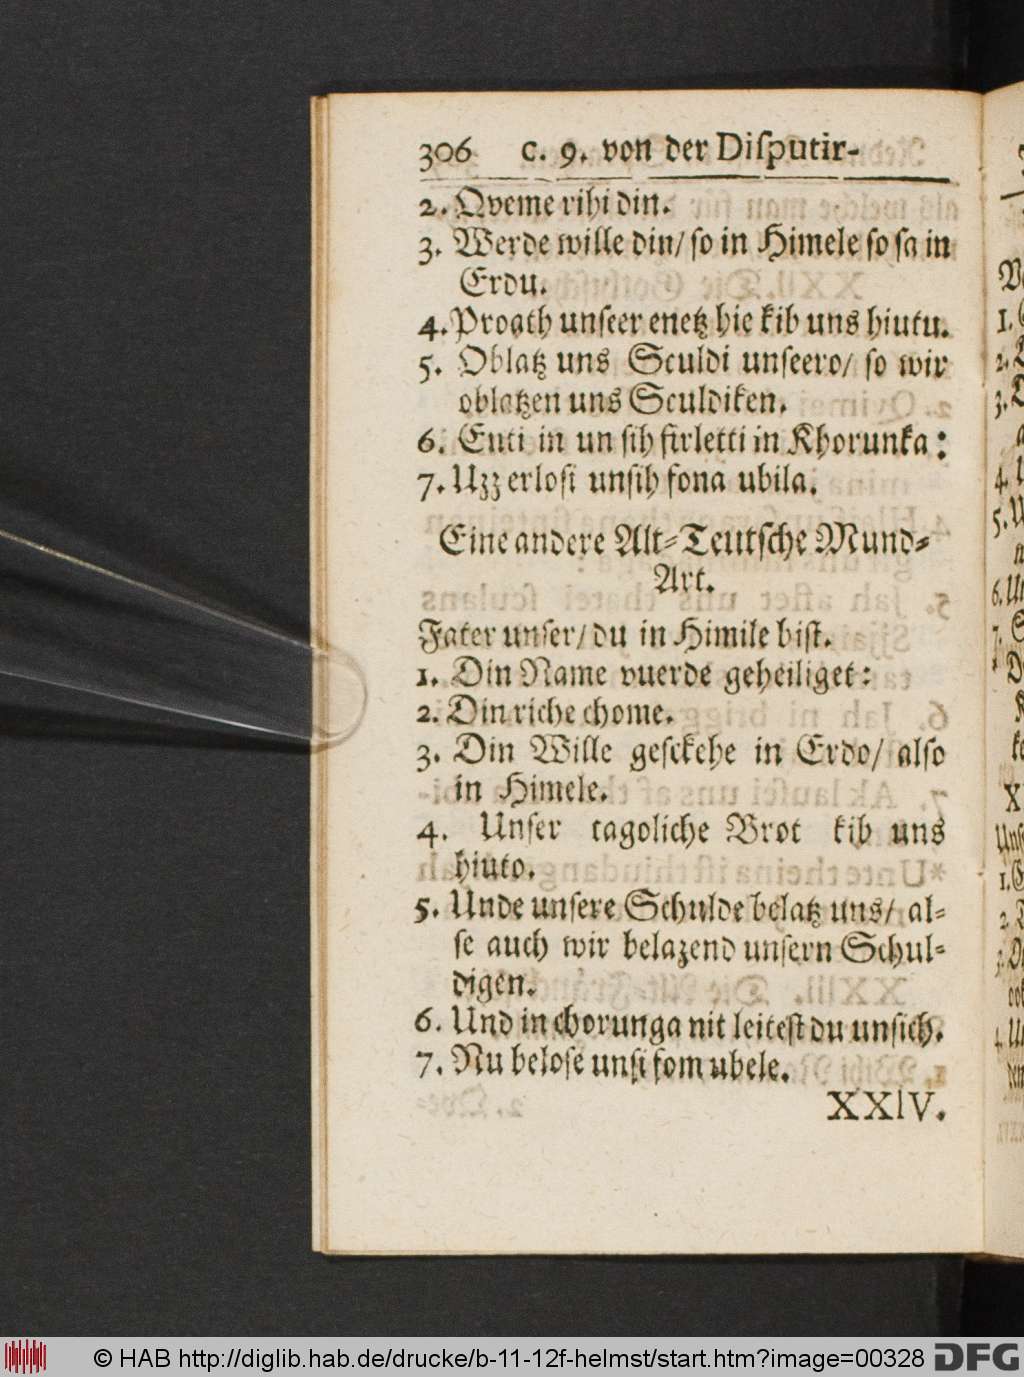 306 c. 9. von der Disputir-
2. Qveme rihi din.
3. Werde wille din/ so in Himele so sa in
Erdu.
4. Proath unseer enetz hie kib uns hiutu.
5. Oblatz uns Sculdi unseero/ so wir
oblatzen uns Sculdiken.
6. Enti in unsih firletti in Khorunka:
7. Uzz erlosi unsih fona ubila.
Eine andere Alt-Teutsche Mund-
Art.
Fater unser/ du in Himile bist.
1. Din Name vuerde geheiliget:
2. Din riche chome.
3. Din Wille gesckehe in Erdo/ also
in Himele.
4. Unser tagoliche Brot kib uns
hiuto.
5. Unde unsere Schulde belatz uns/ al-
se auch wir belazend unsern Schul-
digen.
6. Und in chorunga nit leitest du unsich.
7. Nu belose unsi fom ubele.
XXIV.
© HAB http://diglib.hab.de/drucke/b-11-12f-helmst/start.htm?image=00328 DFG